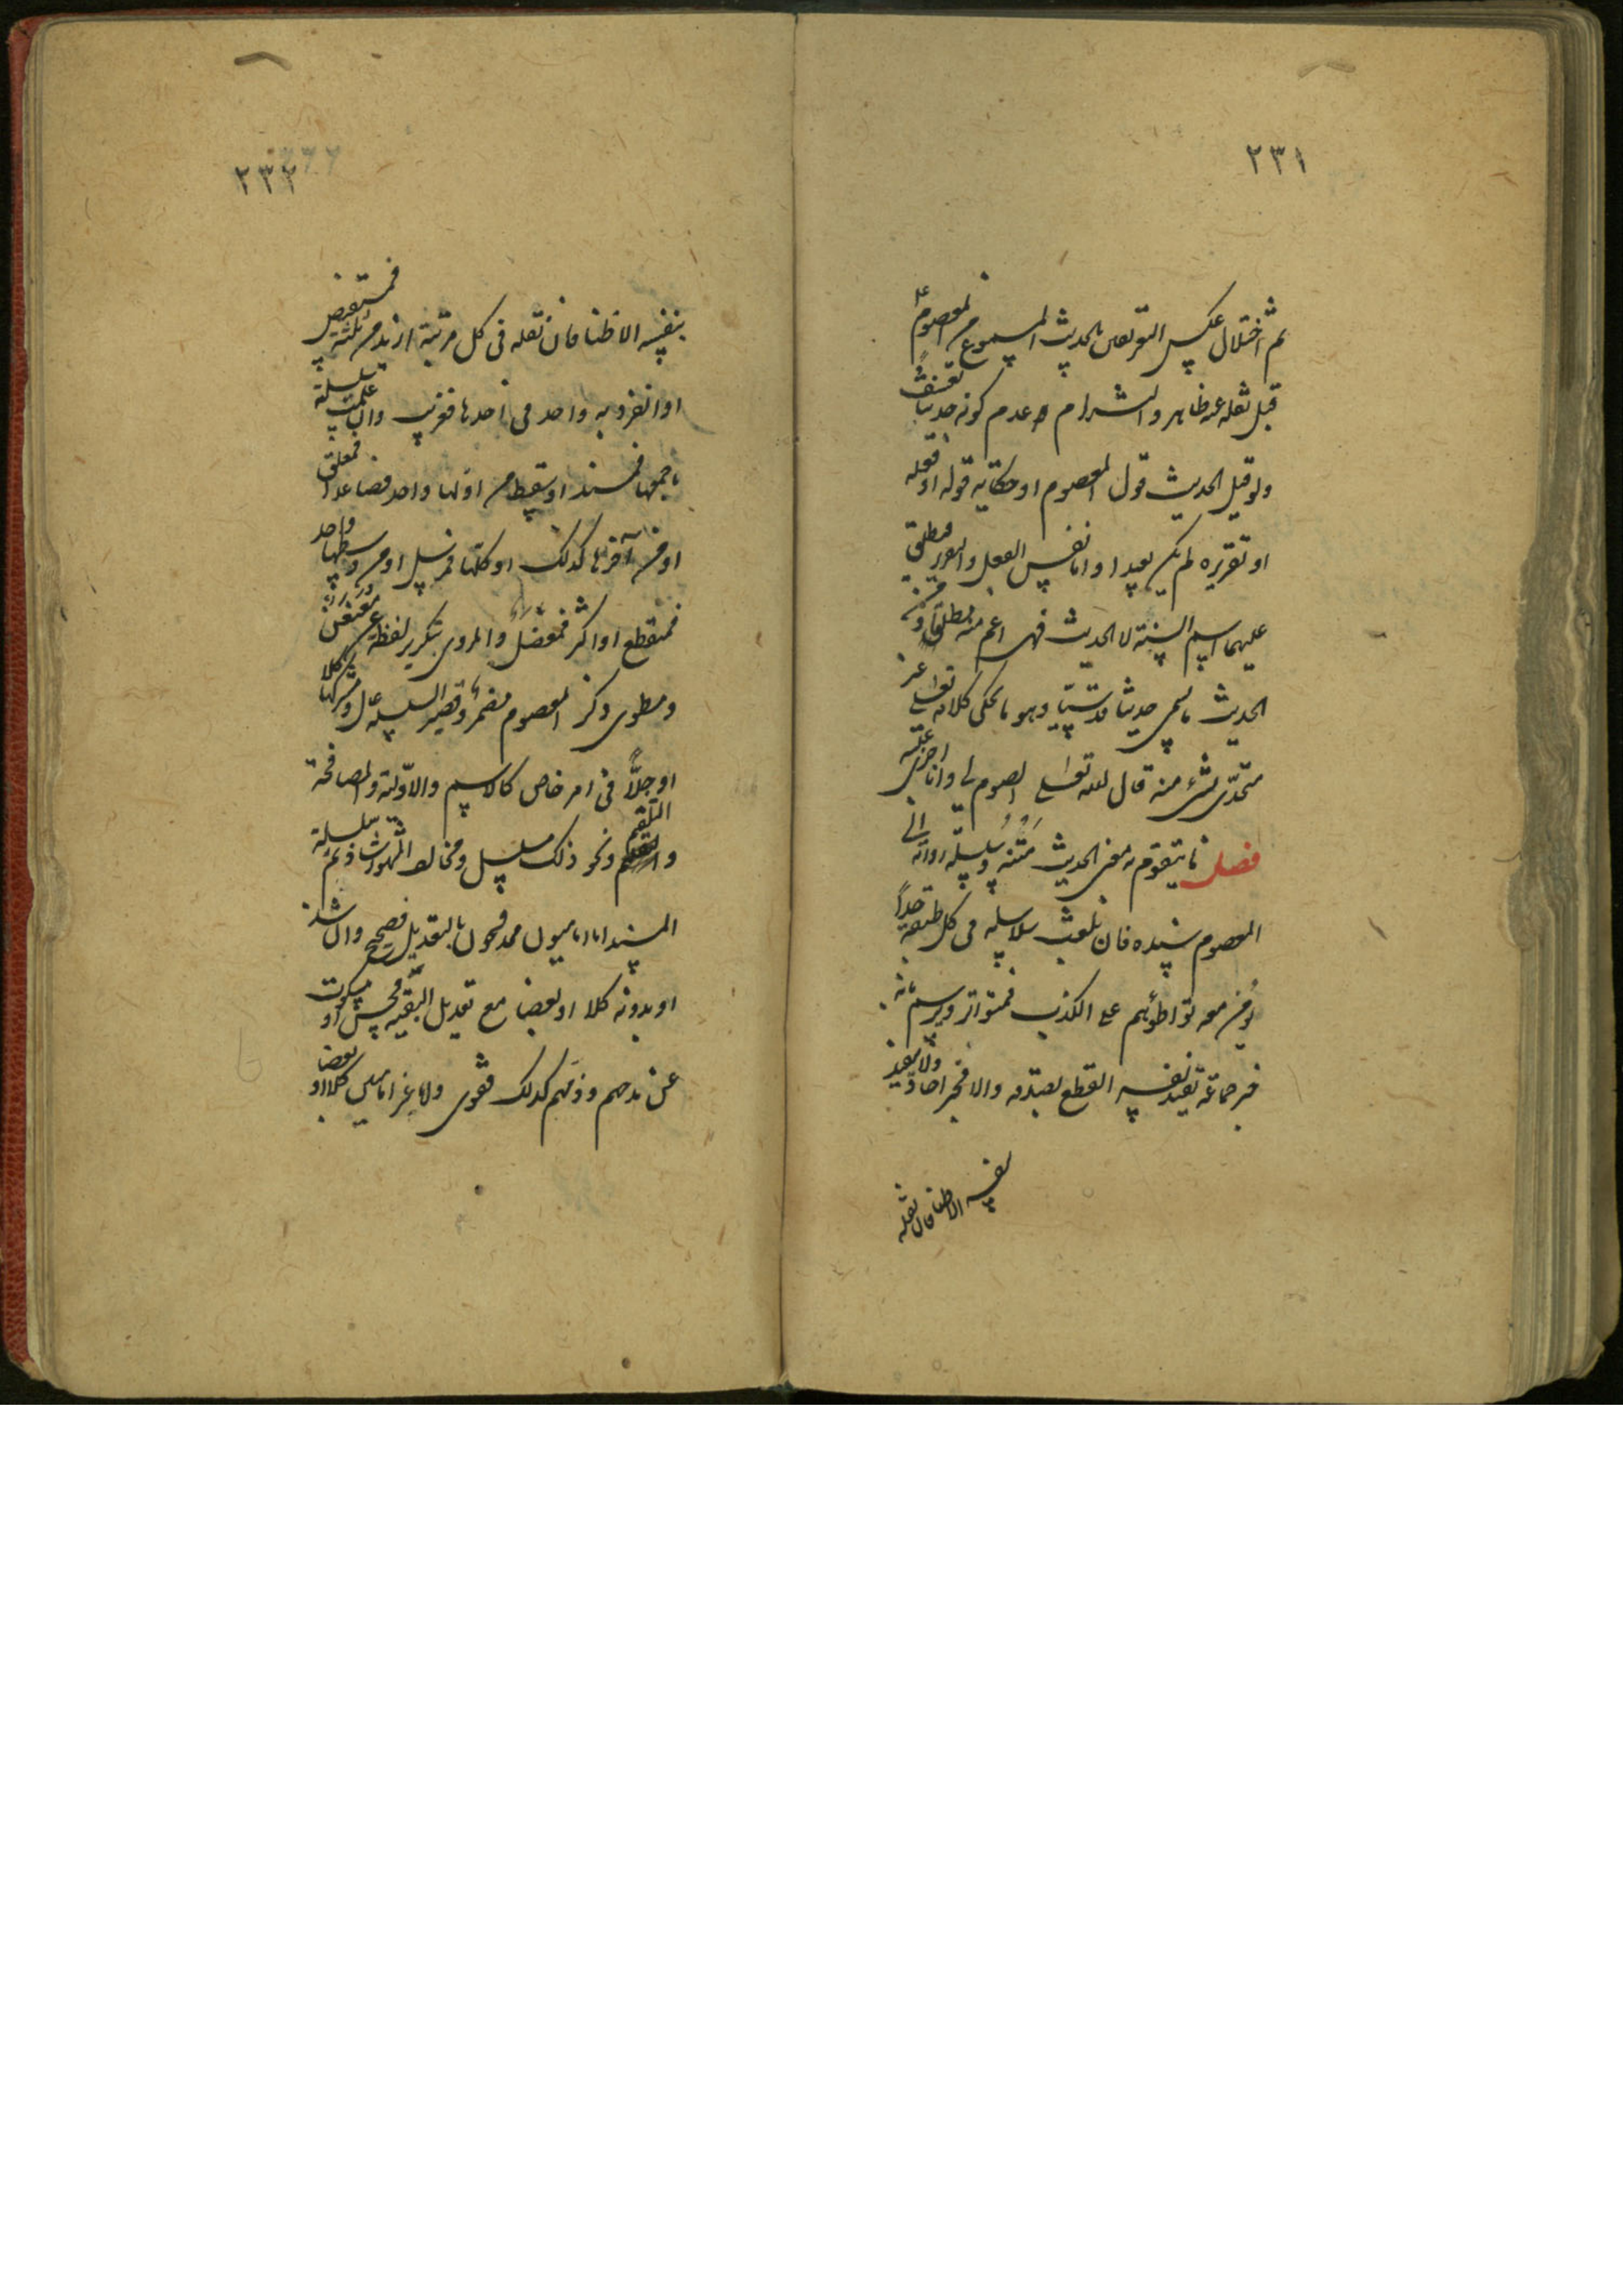 ٢٣١
ثم اختلال عكس التعريفين بالحديث المسموع من المعصوم ع
قبل نقله عنه ظاهر والتزام عدم كونه حديثا تعسف
ولو قيل الحديث قول المعصوم او حكاية قوله او فعله
او تقريره لم يكن بعيدا واما نفس الفعل والتقرير فيطلق
عليهما اسم السنة لا الحديث فهي اعم منه مطلقا ومن
الحديث ما يسمى حديثا قدسيا وهو ما يحكى كلامه تعالى غير
متحدى بشئ منه قال الله تعالى الصوم لي وانا اجزي عليه
فصل ما يتقوم به معنى الحديث متنه وسلسلة رواته الى
المعصوم سنده فان بلغت سلاسله في كل طبقة حدا
يؤمن معه تواطؤهم على الكذب فمتواتر ويرسم بانه
خبر جماعة يفيد بنفسه القطع بصدقه والا فخبر احاد ولا يفيد
بنفسه الا ظنا فان نقله
٢٣٢
بنفسه الا ظنا فان نقله في كل مرتبة ازيد من ثلثة فمستفيض
او انفرد به واحد في احدها فغريب وان علمت سلسلته
باجمعها فمسند او سقط من اولها واحد فصاعدا فمعلق
او من آخرها كذلك او كلها فمرسل او من وسطها واحد
فمنقطع او اكثر فمعضل والمروي بتكرير لفظة عن معنعن
ومطوي ذكر المعصوم مضمر وقصير السلسلة عال ومشتركها كلا
او جلا في امر خاص كالاسم والاولية والمصافحة
والتلقيم ونحو ذلك مسلسل ومخالف المشهور شاذ ثم سلسلة
المسند اما اماميون ممدوحون بالتعديل فصحيح وان شذ
او بدونه كلا او بعضا مع تعديل البقية فحسن او مسكوت
عن مدحهم وذمهم كذلك فقوي واما غير اماميين كلا او بعضا